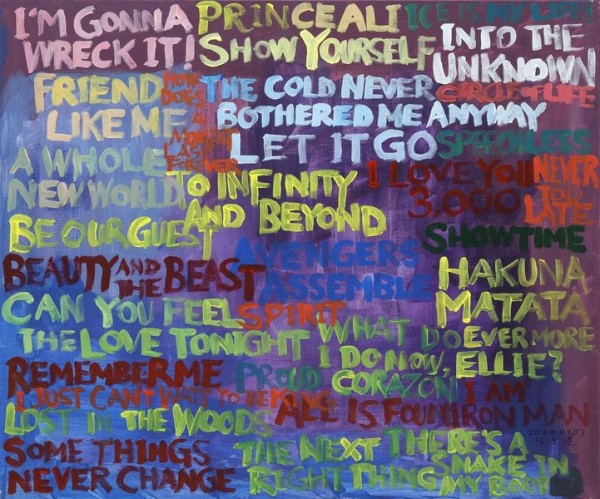 I'M GONNA
WRECK IT!
PRINCE ALI
ICE IS MY LIFE!
SHOW YOURSELF
INTO THE
UNKNOWN
FRIEND
LIKE ME
HOW
DOES
A
MOMENT
LAST
FOREVER
THE COLD NEVER
BOTHERED ME ANYWAY
CIRCLE OF LIFE
LET IT GO
SPEECHLESS
A WHOLE
NEW WORLD
TO INFINITY
AND BEYOND
I LOVE YOU
3.000
NEVER
TOO
LATE
BE OUR GUEST
SHOWTIME
AVENGERS
ASSEMBLE
BEAUTY AND THE BEAST
HAKUNA
MATATA
CAN YOU FEEL
THE LOVE TONIGHT
SPIRIT
WHAT DO
I DO NOW, ELLIE?
EVERMORE
REMEMBER ME
PROUD CORAZÓN
I JUST CAN'T WAIT TO BE KING
ALL IS FOUND
I AM
IRON MAN
LOST IN THE WOODS
SOME THINGS
NEVER CHANGE
THE NEXT
RIGHT THING
THERE'S A
SNAKE IN
MY BOOT